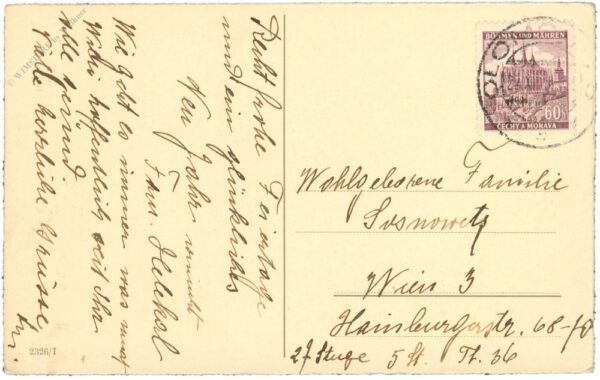 Recht frohe Feiertage
und ein glückliches
Neu Jahr wünscht
Fam.
Wie geht es immer was macht
Wien hoffentlich seit Ihr
alle gesund.
Viele herzliche Grüsse
BÖHMEN UND MÄHREN
60
ČECHY A MORAVA
OLO
Wohlgeborene Familie
Sosnowetz
Wien 3
Hainburgerstr. 68-70
27 Stuge 5 St. Tt. 36
2326/I